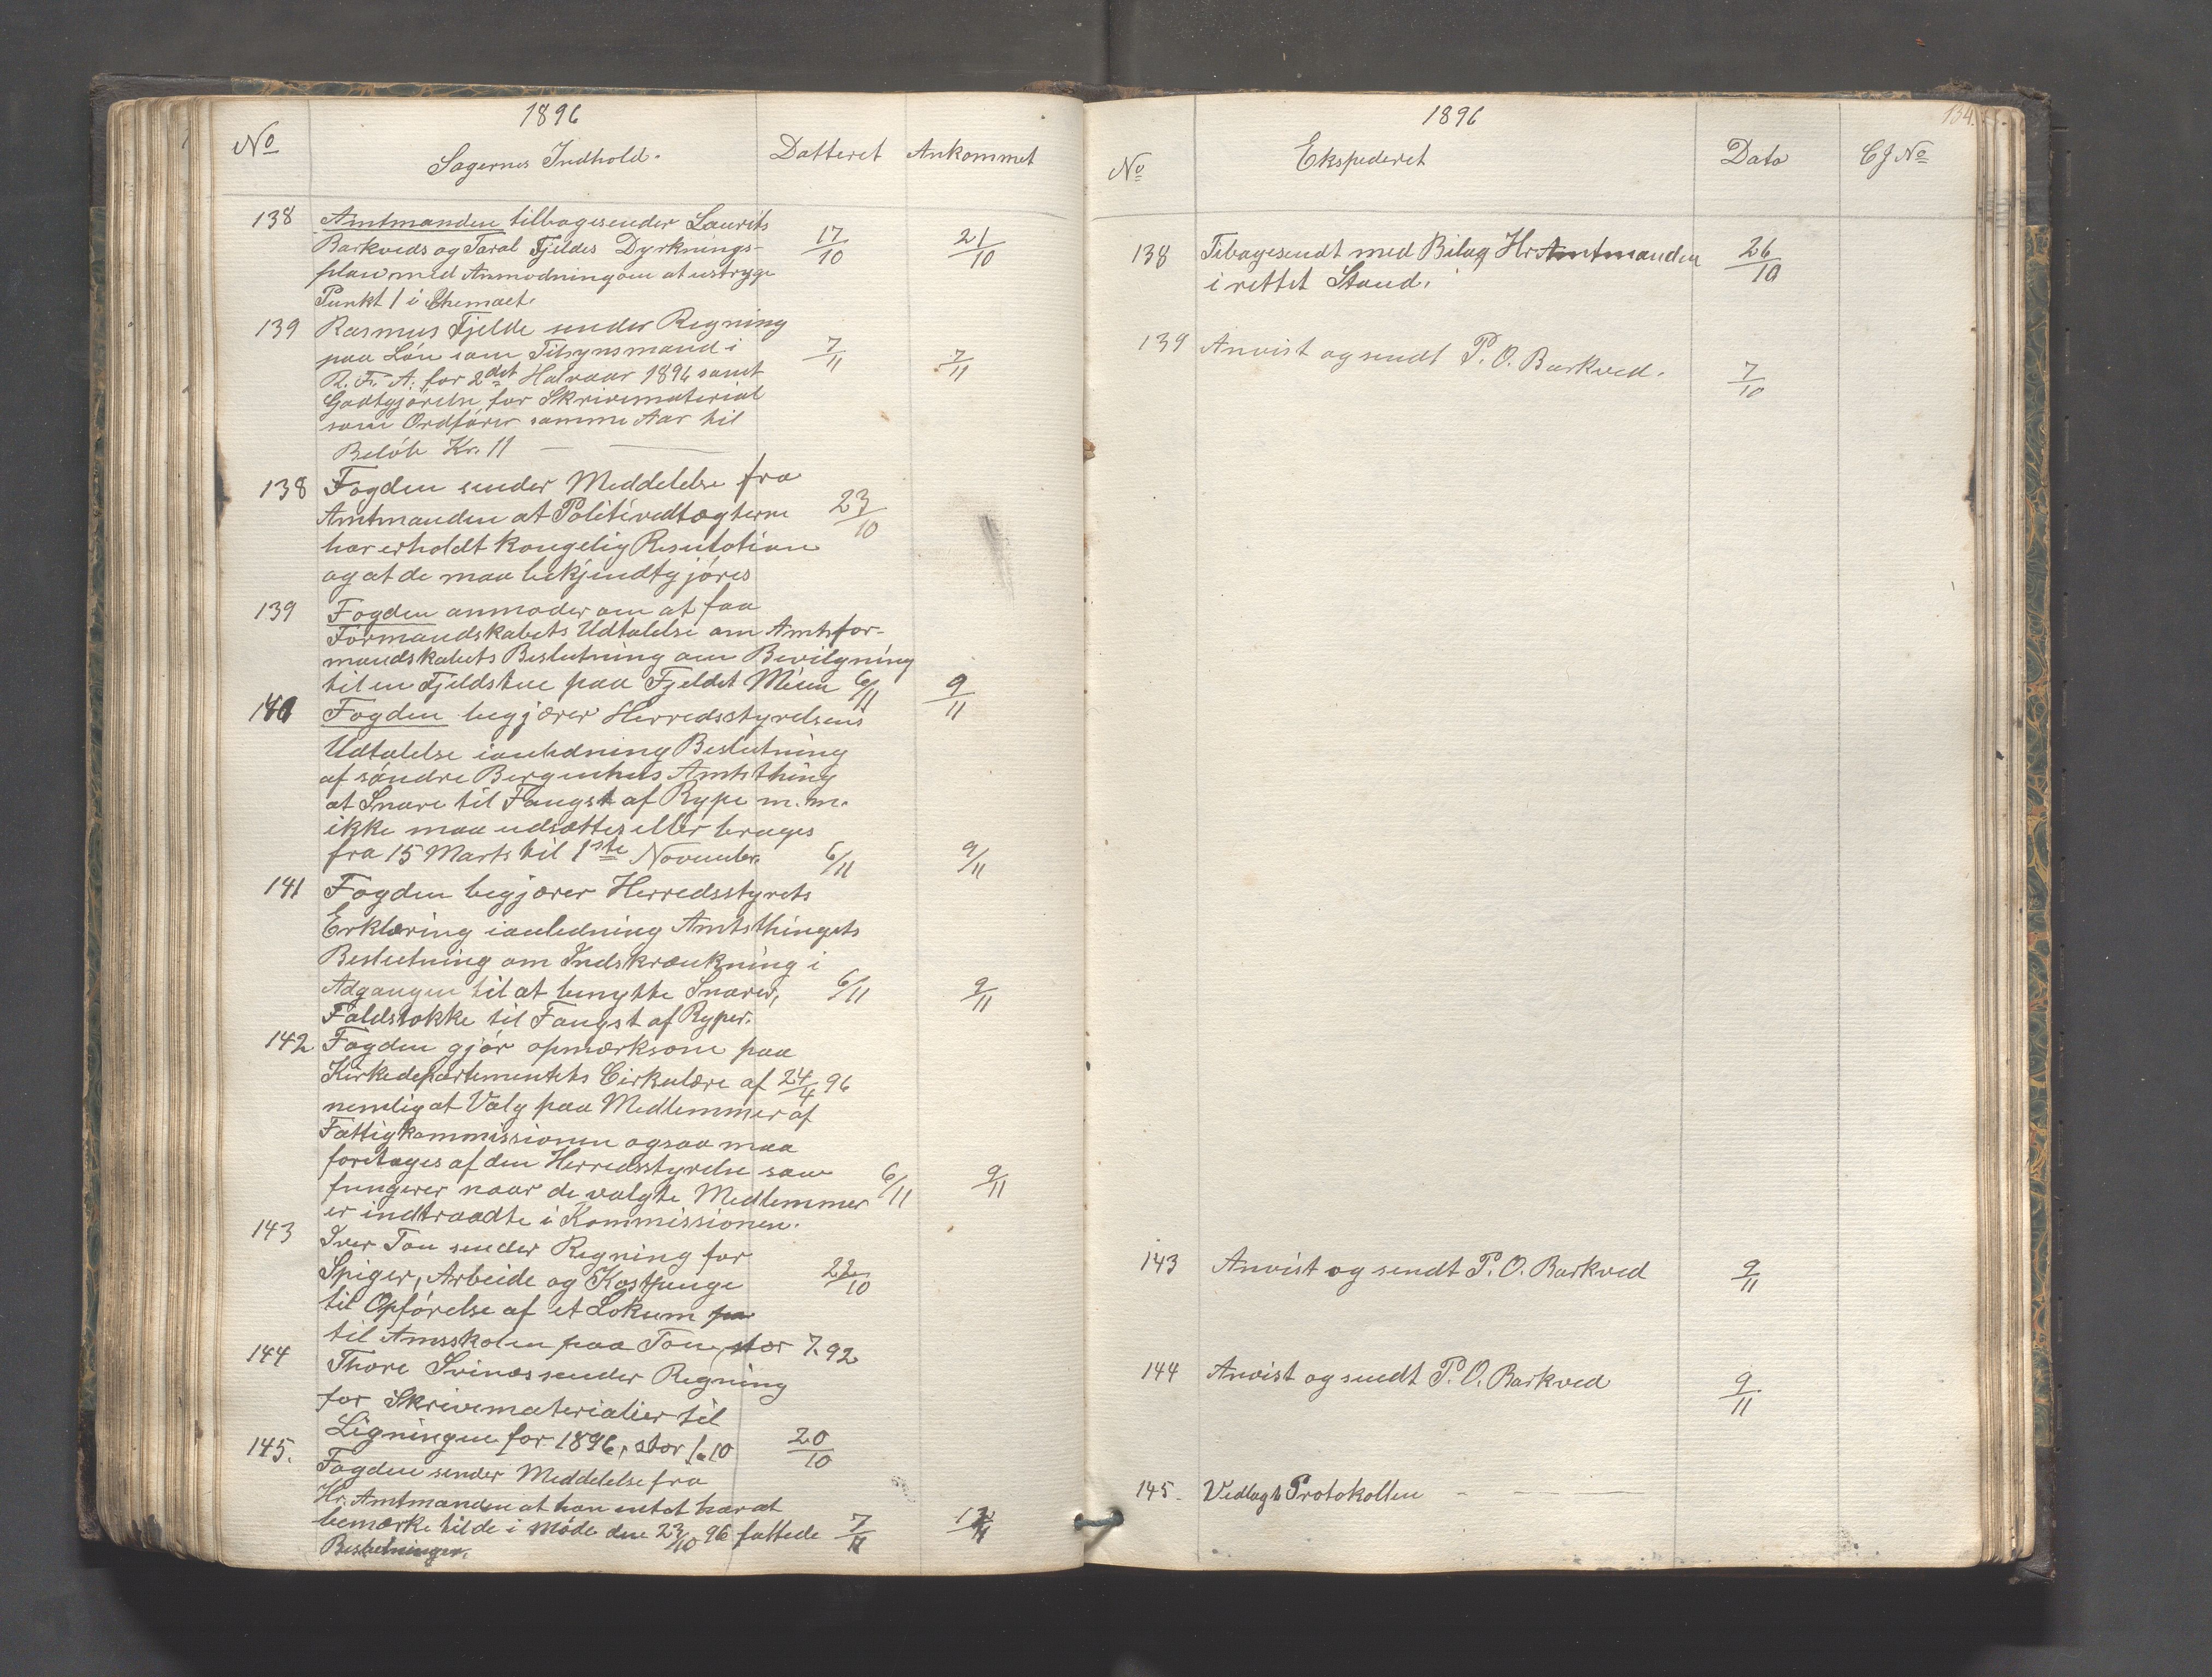 1896
No Sagernes Indhold. Datteret Ankommet
138 Amtmanden tilbagesender Laurits
Barkveds og Taral Fjeldes Dyrknings-
plan med Anmodning om at ustryge
Punkt 1 i Skemaet.
17/10 21/10
139 Rasmus Fjelde sender Regning
paa Lön som Tilsynsmand i
R. Fr. A. for 2det Halvaar 1896 samt
Godtgjörelse for Skrivematerial
som Ordförer samme Aar til
Belöb Kr. 11
7/11 7/11
138 Fogden sender Meddelelse fra
Amtmanden at Politivedtægterne
har erholdt Kongelig Resulotion
og at de maa bekjendtgjöres
23/10
139 Fogden anmoder om at faa
Formandskabets Udtalelse om Amtsfor-
mandskabets Beslutning om Bevilgning
til en Fjeldstue paa Fjeldet 6/11 9/11
140 Fogden begjærer Herredsstyrelsens
Udtalelse ianledning Beslutning
af söndre Bergenhus Amtsthing
at Snare til Fangst af Rype m.m.
ikke maa udsættes eller bruges
fra 15 Marts til 1ste November. 6/11 9/11
141 Fogden begjærer Herredsstyrets
Erklæring ianledning Amtsthingets
Beslutning om Indskrænkning i
Adgangen til at benytte Snarer, 6/11 9/11
Faldstokke til Fangst af Ryper.
142 Fogden gjör opmærksom paa
Kirkedepartementets Cirkulære af 24/4 96
nemlig at Valg paa Medlemmer af
Fattigkommissionen ogsaa maa
foretages af den Herredsstyrelse som
fungerer naar de valgte Medlemmer 6/11 9/11
er indtraadte i Kommissionen.
143 Iver Tou sender Regning for
Spiger, Arbeide og Kostpenge 22/10
til Opförelse af et Lokum pa
til Amsskolen paa Tou, stor 7.92
144 Thore Svines sender Regning
for Skrivematerialier til
Ligningen for 1896, stor 1.10 20/10
145. Fogden sender Meddelelse fra
Hr. Amtmanden at han intet har at
bemærke til de i Möde den 23/10 96 fattede 7/11 12/11
Beslutninger.
134.
1896
No Ekspederet Dato CJ No
138 Tibagesendt med Bilag Hr Amtmanden 26/10
i rettet Stand.
139 Anvist og sendt P. O. Barkved. 7/10
143 Anvist og sendt P. O. Barkved 9/11
144 Anvist og sendt P. O. Barkved 9/11
145. Vedlagt Protokollen - - -